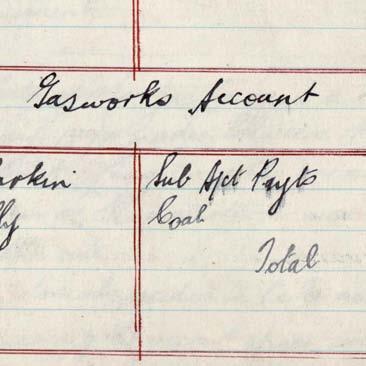 Gasworks Account
Sub Agt Payts
Coal
Total